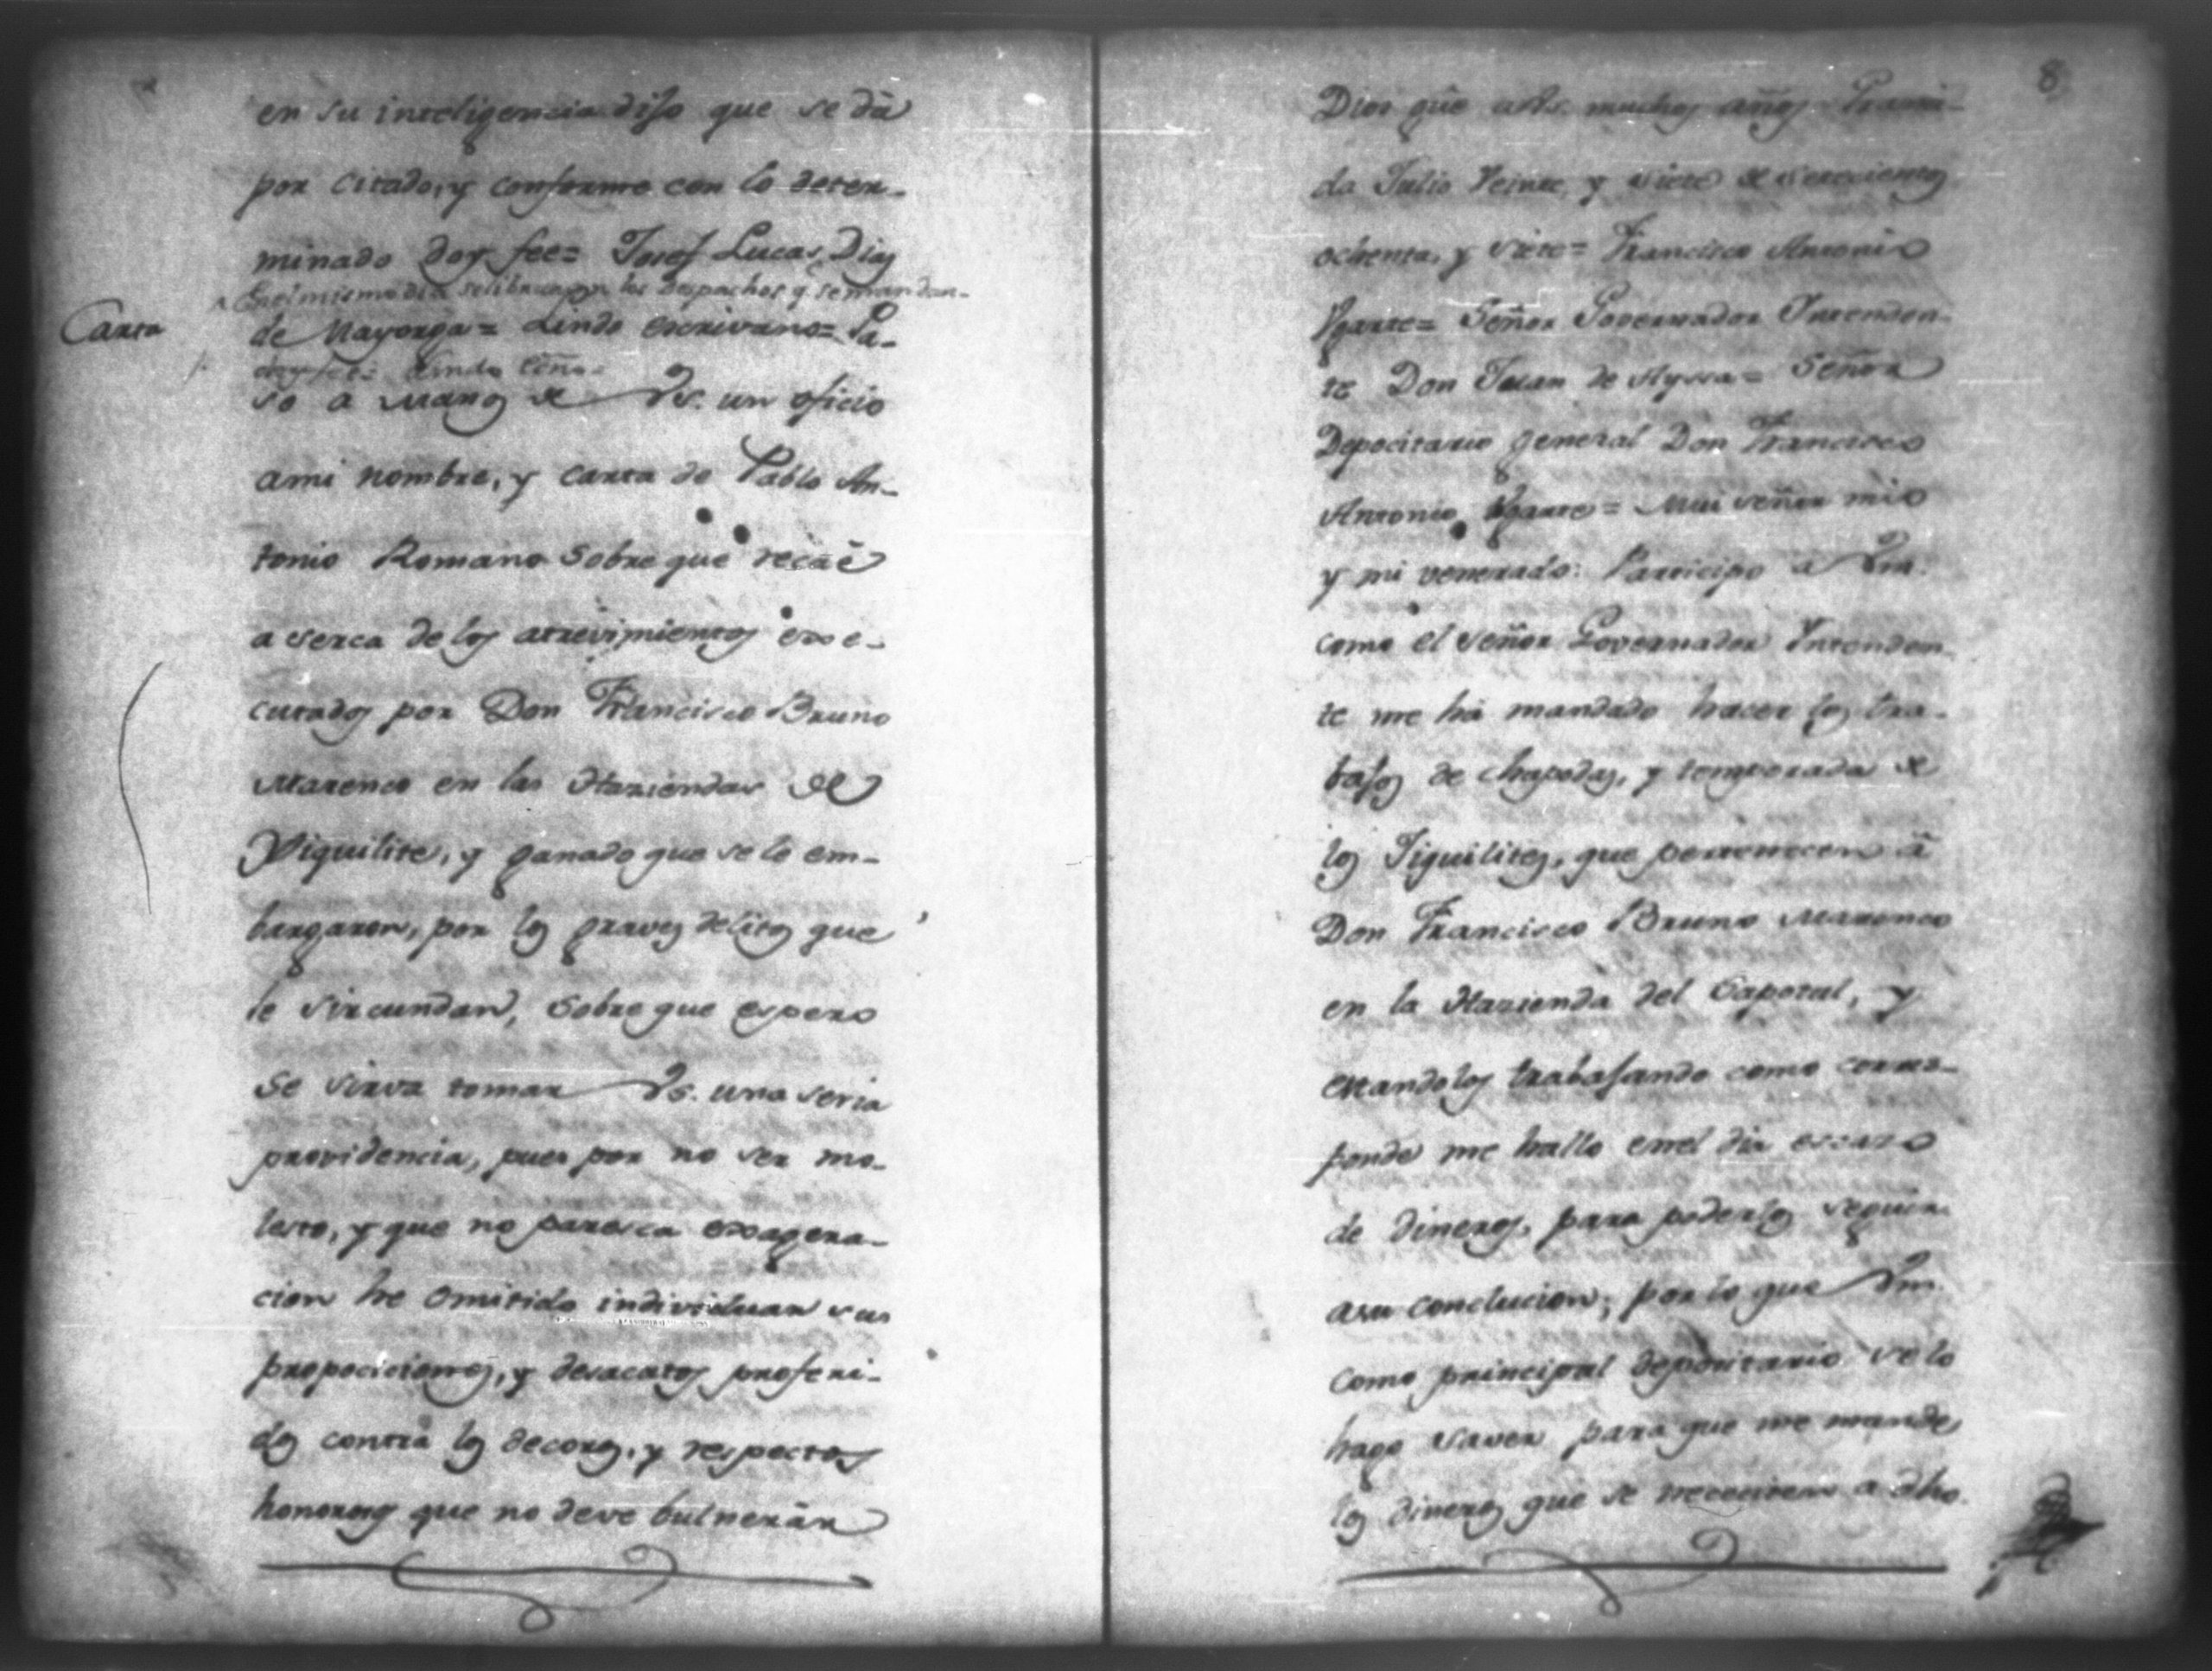 en su inteligencia dijo que se dà
por citado, y conforme con lo deter-
minado doy fee= Josef Lucas Dias
En el mismo dia se libraron los Despachos q̃ se mandan-
Carta
de Mayorga= Lindo escrivano= Pa-
doy fee= Lindo Esño.
so a manos de Vs. un oficio
ami nombre, y carta de Pablo An-
tonio Romano sobre que recàe
a serca de los atrevimientos exe-
cutados por Don Francisco Bruno
Marenco en las Haziendas de
Xiquilite, y ganado que se le em-
bargaron, por los graves delitos que
le sircundan, sobre que espero
se sirva tomar Vs. una seria
providencia, pues por no ser mo-
lesto, y que no paresca exagera-
cion he omitido individuar sus
propociciones, y desacatos proferi-
dos contra los decoros, y respectos
honoros que no deve bulnerár
8
Dios güe a Vs. muchos años
da Julio Veinte, y siete de setecientos
ochenta, y siete= Francisco Antonio
Ugarte= Señor Governador Intenden-
te Don Juan de Ayssa= Señor
Depocitario general Don Francisco
Antonio Ugarte= Mui señor mio
y mi venerado: Participo a Vm.
como el señor Governador Intenden-
te me hà mandado hacer los tra-
bajos de chapodas, y temporada de
los Jiquilites, que pertenecen à
Don Francisco Bruno Marenco
en la Hazienda del Caporal, y
estandolos trabajando como corres-
ponde me hallo en el dia escaso
de dineros, para poderlos seguir
asu conclucion; por lo que Vm.
como principal depositario se lo
hago saver para que me mande
los dineros que se necesiten a dho.